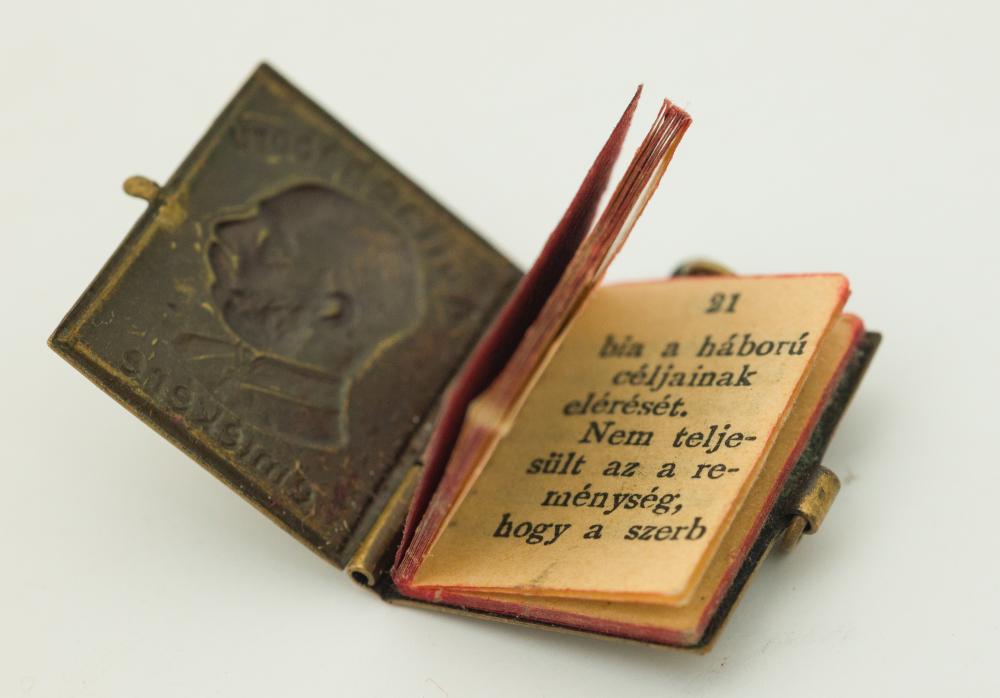 21
bia a háború
céljainak
elérését.
Nem telje-
sült az a re-
ménység,
hogy a szerb